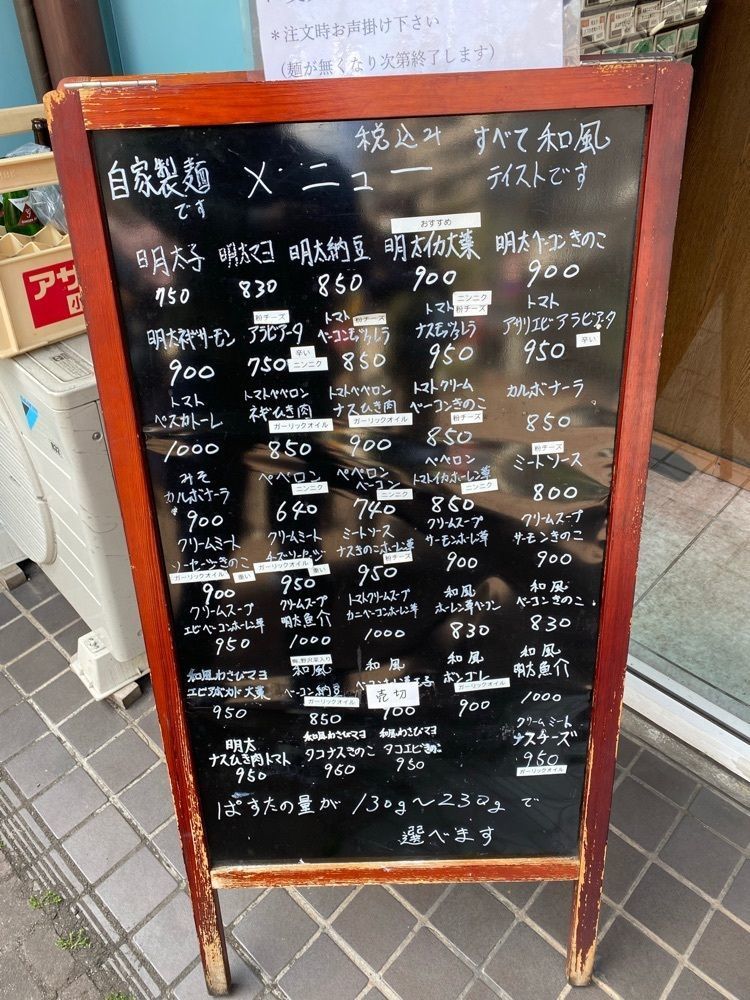 *注文時お声掛け下さい
(麺が無くなり次第終了します)
税込み すべて和風
自家製麺 メニュー テイストです
です
おすすめ
明太子 明太マヨ 明太納豆 明太イカ大葉 明太ベーコンきのこ
750 830 850 900 900
粉チーズ トマト 粉チーズ トマト ニンニク 粉チーズ トマト
明太ネギサーモン アラビアータ ベーコンモッツァレラ ナスモッツァレラ アサリエビアラビアタ
900 750 辛い ニンニク 850 950 950 辛い
トマト トマトペペロン トマトペペロン トマトクリーム カルボナーラ
ペスカトーレ ネギひき肉 ナスひき肉 ベーコンきのこ
ガーリックオイル ガーリックオイル 粉チーズ
1000 850 900 850 850
粉チーズ
みそ ペペロン ペペロン ペペロン ミートソース
カルボナーラ ニンニク ベーコン ニンニク トマトイカホーレン草 ニンニク
900 640 740 850 800
クリームミート クリームミート ミートソース クリームスープ クリームスープ
ソーセージきのこ チーズソーセージ ナスきのこホーレン草 サーモンホーレン草 サーモンきのこ
ガーリックオイル 重い ガーリックオイル 重い 粉チーズ
900 950 950 900 900
クリームスープ クリームスープ トマトクリーム 和風 和風
エビベーコンホーレン草 明太魚介 カニベーコンホーレン草 ホーレン草ベーコン ベーコンきのこ
950 1000 1000 830 830
梅、野沢菜入り
和風わさびマヨ 和風 和風 和風 和風
エビアボカド大葉 ベーコン納豆 売切 ボンゴレ 明太魚介
ガーリックオイル ガーリックオイル
950 850 900 1000
明太 和風わさびマヨ 和風わさびマヨ クリームミート
ナスひき肉トマト タコナスきのこ タコエビきのこ ナスチーズ
950 950 950 950
ガーリックオイル
ぱすたの量が130g〜230gで
選べます
アサ